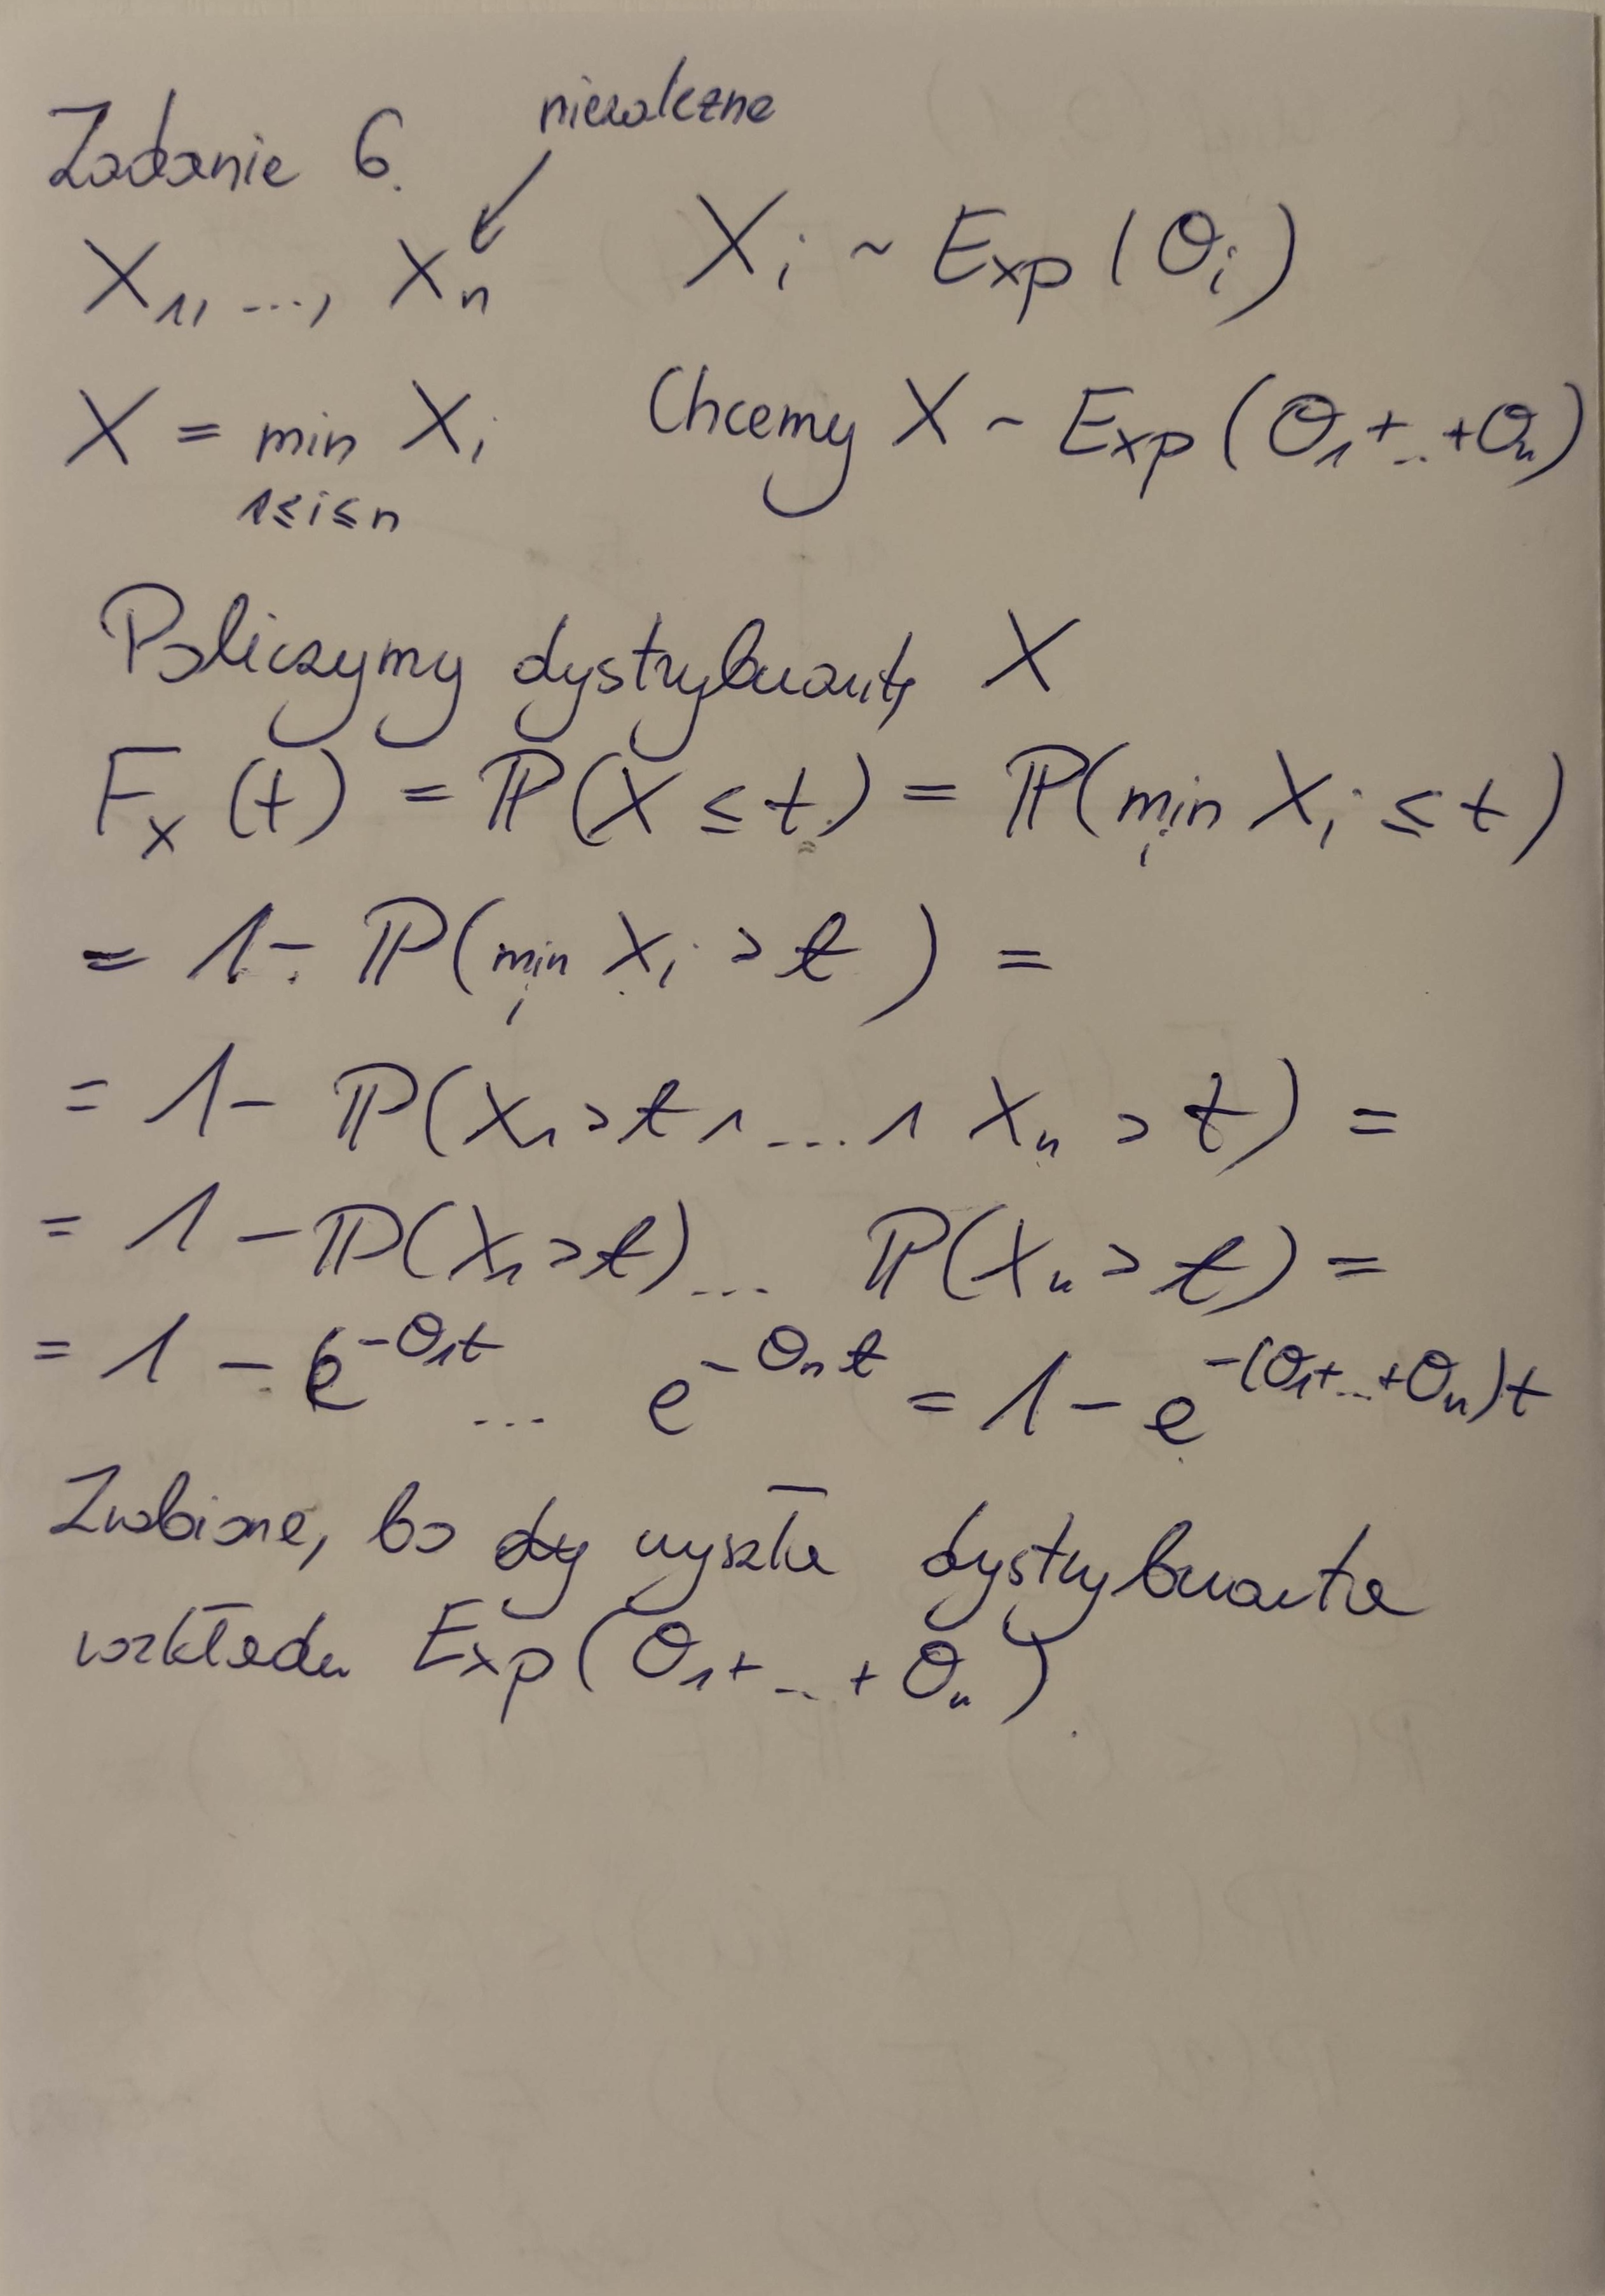 niezależne
Zadanie 6.
X₁, ..., Xₙ    Xᵢ ~ Exp(θᵢ)
X = min Xᵢ    Chcemy X ~ Exp(θ₁+...+θₙ)
1≤i≤n
Policzymy dystrybuantę X
F_X(t) = ℙ(X ≤ t) = ℙ(min_i Xᵢ ≤ t)
= 1 - ℙ(min_i Xᵢ > t) =
= 1 - ℙ(X₁ > t ∧ ... ∧ Xₙ > t) =
= 1 - ℙ(X₁ > t) ... ℙ(Xₙ > t) =
= 1 - e^{-θ₁t} ... e^{-θₙt} = 1 - e^{-(θ₁+...+θₙ)t}
Zrobione, bo wyszła dystrybuanta
rozkładu Exp(θ₁+...+θₙ).